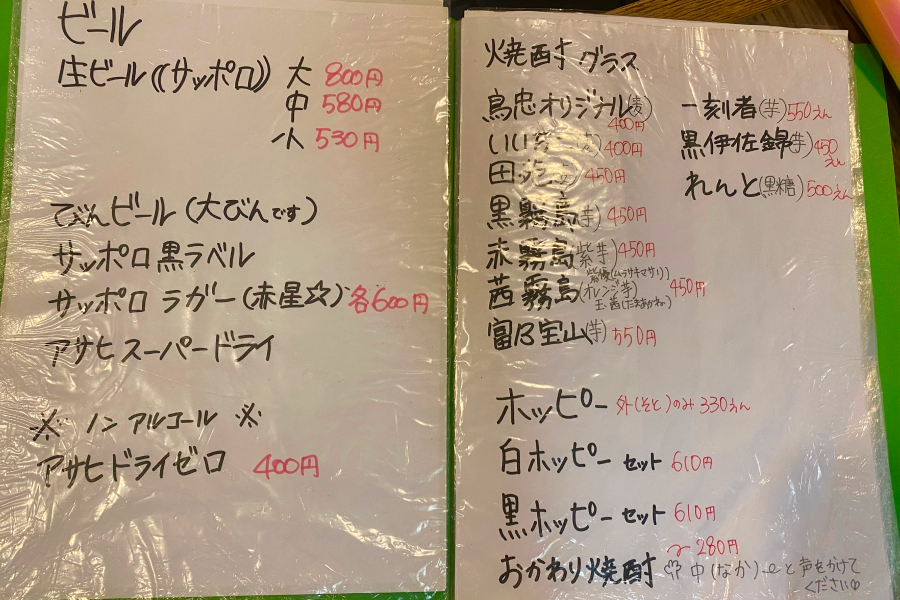 ビール
生ビール(サッポロ) 大 800円
中 580円
小 530円
びんビール(大びんです)
サッポロ黒ラベル
サッポロ ラガー(赤星☆) 各600円
アサヒスーパードライ
※ ノンアルコール ※
アサヒドライゼロ 400円
焼酎 グラス
鳥忠オリジナル(麦) 400円
いい 400円
田苑 450円
黒霧島(芋) 450円
赤霧島(紫芋) 450円
紫優(ムラサキマサリ)
茜霧島(オレンジ芋) 450円
玉茜(たまあかね)
富乃宝山(芋) 550円
一刻者(芋) 550えん
黒伊佐錦(芋) 450えん
れんと(黒糖) 500えん
ホッピー 外(そと)のみ 330えん
白ホッピー セット 610円
黒ホッピー セット 610円
おかわり焼酎 〜280円
中(なか)〜と声をかけて
ください♡